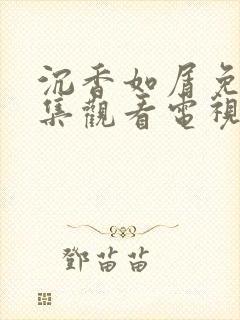 沉香如屑免
集觀看電視
鄧苗苗